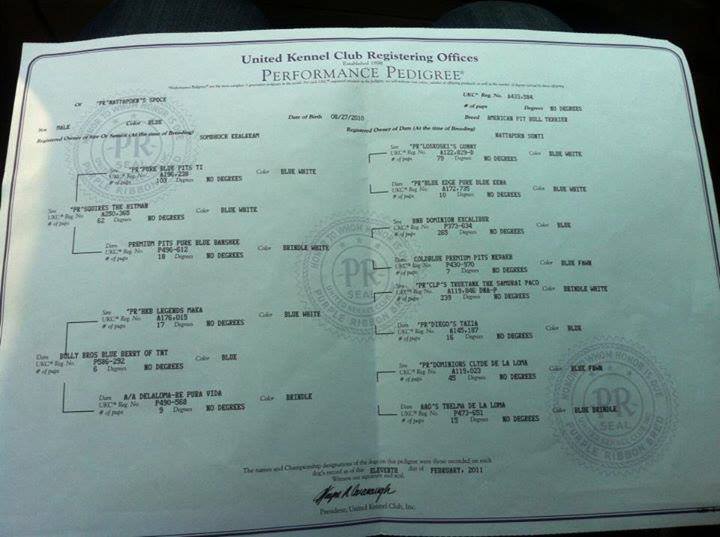 United Kennel Club Registering Offices
Established 1898
PERFORMANCE PEDIGREE®
Of "PR"WATTAPORN'S SPOCK
UKC® Reg. No. A433,584
# of pups Degrees NO DEGREES
Sex MALE Color BLUE Date of Birth 08/27/2010 Breed AMERICAN PIT BULL TERRIER
Registered Owner of Sire Or Semen (At the time of Breeding) SOMBHOCH KEALKEAM
Registered Owner of Dam (At the time of Breeding) WATTAPORN SUNTI
Sire "PR"PURE BLUE PITS TI
UKC® Reg. No. A196,228 Color BLUE WHITE
# of pups 103 Degrees NO DEGREES
Sire "PR"SQUIRES THE HITMAN
UKC® Reg. No. A250,365 Color BLUE WHITE
# of pups 62 Degrees NO DEGREES
Dam PREMIUM PITS PURE BLUE BANSHEE
UKC® Reg. No. P496-612 Color BRINDLE WHITE
# of pups 18 Degrees NO DEGREES
Sire "PR"HKB LEGENDS MAKA
UKC® Reg. No. A176,019 Color BLUE WHITE
# of pups 17 Degrees NO DEGREES
Dam BULLY BROS BLUE BERRY OF TNT
UKC® Reg. No. P586-292 Color BLUE
# of pups 6 Degrees NO DEGREES
Dam A/A DELALOMA-RE PURA VIDA
UKC® Reg. No. P490-568 Color BRINDLE
# of pups 9 Degrees NO DEGREES
Sire "PR"LOSKOSKI'S GUNNY
UKC® Reg. No. A122,829-D Color BLUE WHITE
# of pups 79 Degrees NO DEGREES
Dam "PR"BLUE EDGE PURE BLUE KENA
UKC® Reg. No. A172,735 Color BLUE WHITE
# of pups 10 Degrees NO DEGREES
Sire BNB DOMINION EXCALIBUR
UKC® Reg. No. P373-634 Color BLUE
# of pups 265 Degrees NO DEGREES
Dam COLDBLUE PREMIUM PITS
UKC® Reg. No. P430-970 Color BLUE FAWN
# of pups 7 Degrees NO DEGREES
Sire "PR"CLP'S TRUETANK THE SAMURAI PACO
UKC® Reg. No. A119,846 DNA-P Color BRINDLE WHITE
# of pups 239 Degrees NO DEGREES
Dam "PR"DIEGO'S TAZIA
UKC® Reg. No. A145,187 Color BLUE
# of pups 16 Degrees NO DEGREES
Sire "PR"DOMINIONS CLYDE DE LA LOMA
UKC® Reg. No. A119,023 Color BLUE FAWN
# of pups 45 Degrees NO DEGREES
Dam THELMA DE LA LOMA
UKC® Reg. No. P473-651 Color BLUE BRINDLE
# of pups 15 Degrees NO DEGREES
PR
SEAL
PURPLE RIBBON BRED
HONOR TO WHOM HONOR IS DUE
PR
SEAL
UNITED KENNEL CLUB INC.
PURPLE RIBBON BRED
HONOR TO WHOM HONOR IS DUE
PR
SEAL
UNITED KENNEL CLUB INC.
PURPLE RIBBON BRED
The names and Championship designations of the dogs on this pedigree were those recorded on each
dog's record as of this ELEVENTH day of FEBRUARY, 2011
Witness our signature and seal,
Wayne R Cavanaugh
President, United Kennel Club, Inc.